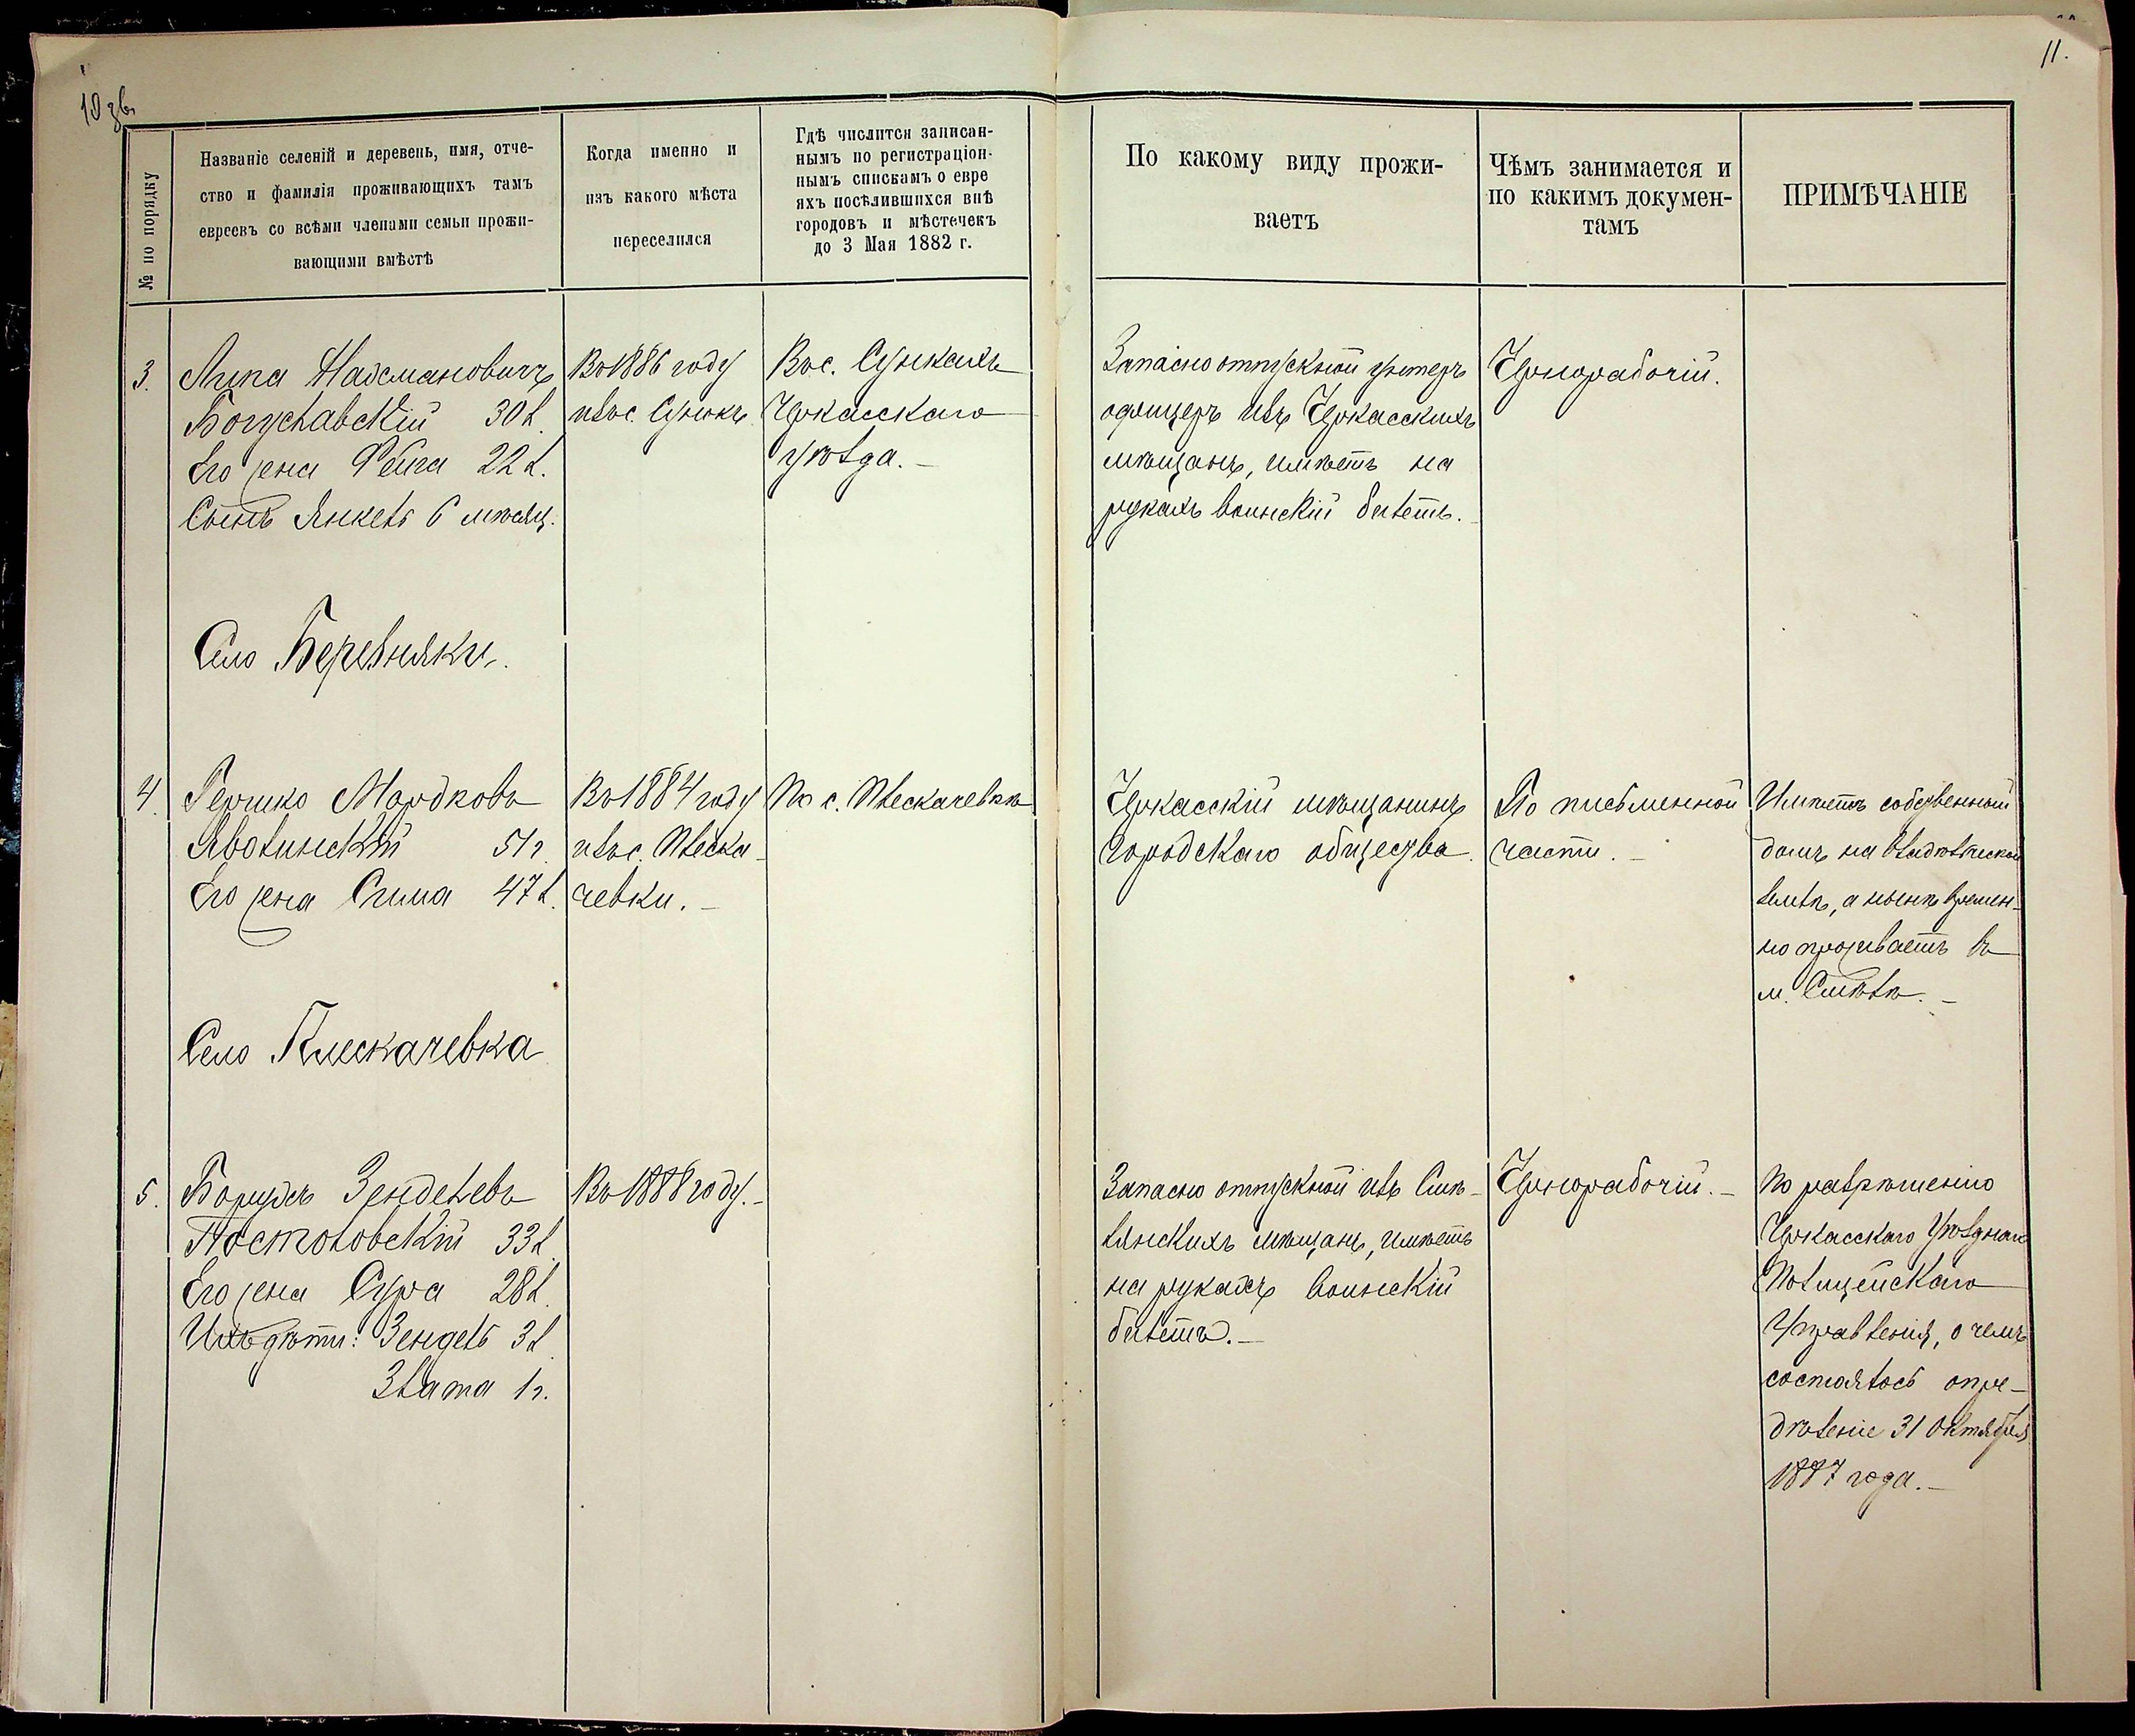 10 зв.
11.
№ по порядку
Названіе селеній и деревень, имя, отче-
ство и фамилія проживающихъ тамъ
евреевъ со всѣми членами семьи прожи-
вающими вмѣстѣ
Когда именно и
изъ какого мѣста
переселился
Гдѣ числится записан-
нымъ по регистраціон-
нымъ спискамъ о евре
яхъ посѣлившихся внѣ
городовъ и мѣстечекъ
до 3 Мая 1882 г.
По какому виду прожи-
ваетъ
Чѣмъ занимается и
по какимъ докумен-
тамъ
ПРИМѢЧАНІЕ
3.
Липа Нахмановичъ
Богуславскій 30 л.
Его жена Фейга 22 л.
Сынъ Янкель 6 мѣсяц.
Въ 1886 году
изъ с. Сунокъ
Въ с. Сункахъ
Черкасскаго
уѣзда.-
Запасно отпускной унтеръ
офицеръ изъ Черкасскихъ
мѣщанъ, имѣетъ на
рукахъ воинскій билетъ.
Чернорабочій.
Село Березняки.
4.
Гершко Мордковъ
Яволинскій 51 г.
Его жена Сима 47 л.
Въ 1884 году
изъ с. Плеска-
чевки.-
По с. Плескачевкѣ
Черкасскій мѣщанинъ
городскаго общества.
По письменной
части.-
Имѣетъ собственный
домъ на владѣльческой
землѣ, а нынѣ времен-
но проживаетъ въ
м. Смѣлѣ.-
Село Плескачевка
5.
Борухъ Зенделевъ
Постоловскій 33 л.
Его жена Сура 28 л.
Ихъ дѣти: Зендель 3 л.
Злата 1 г.
Въ 1888 году.-
Запасно отпускной изъ Смѣ-
лянскихъ мѣщанъ, имѣетъ
на рукахъ воинскій
билетъ.-
Чернорабочій.-
По разрѣшенію
Черкасскаго Уѣзднаго
Полицейскаго
Управленія, о чемъ
состоялось опре-
дѣленіе 31 Октября
1887 года.-